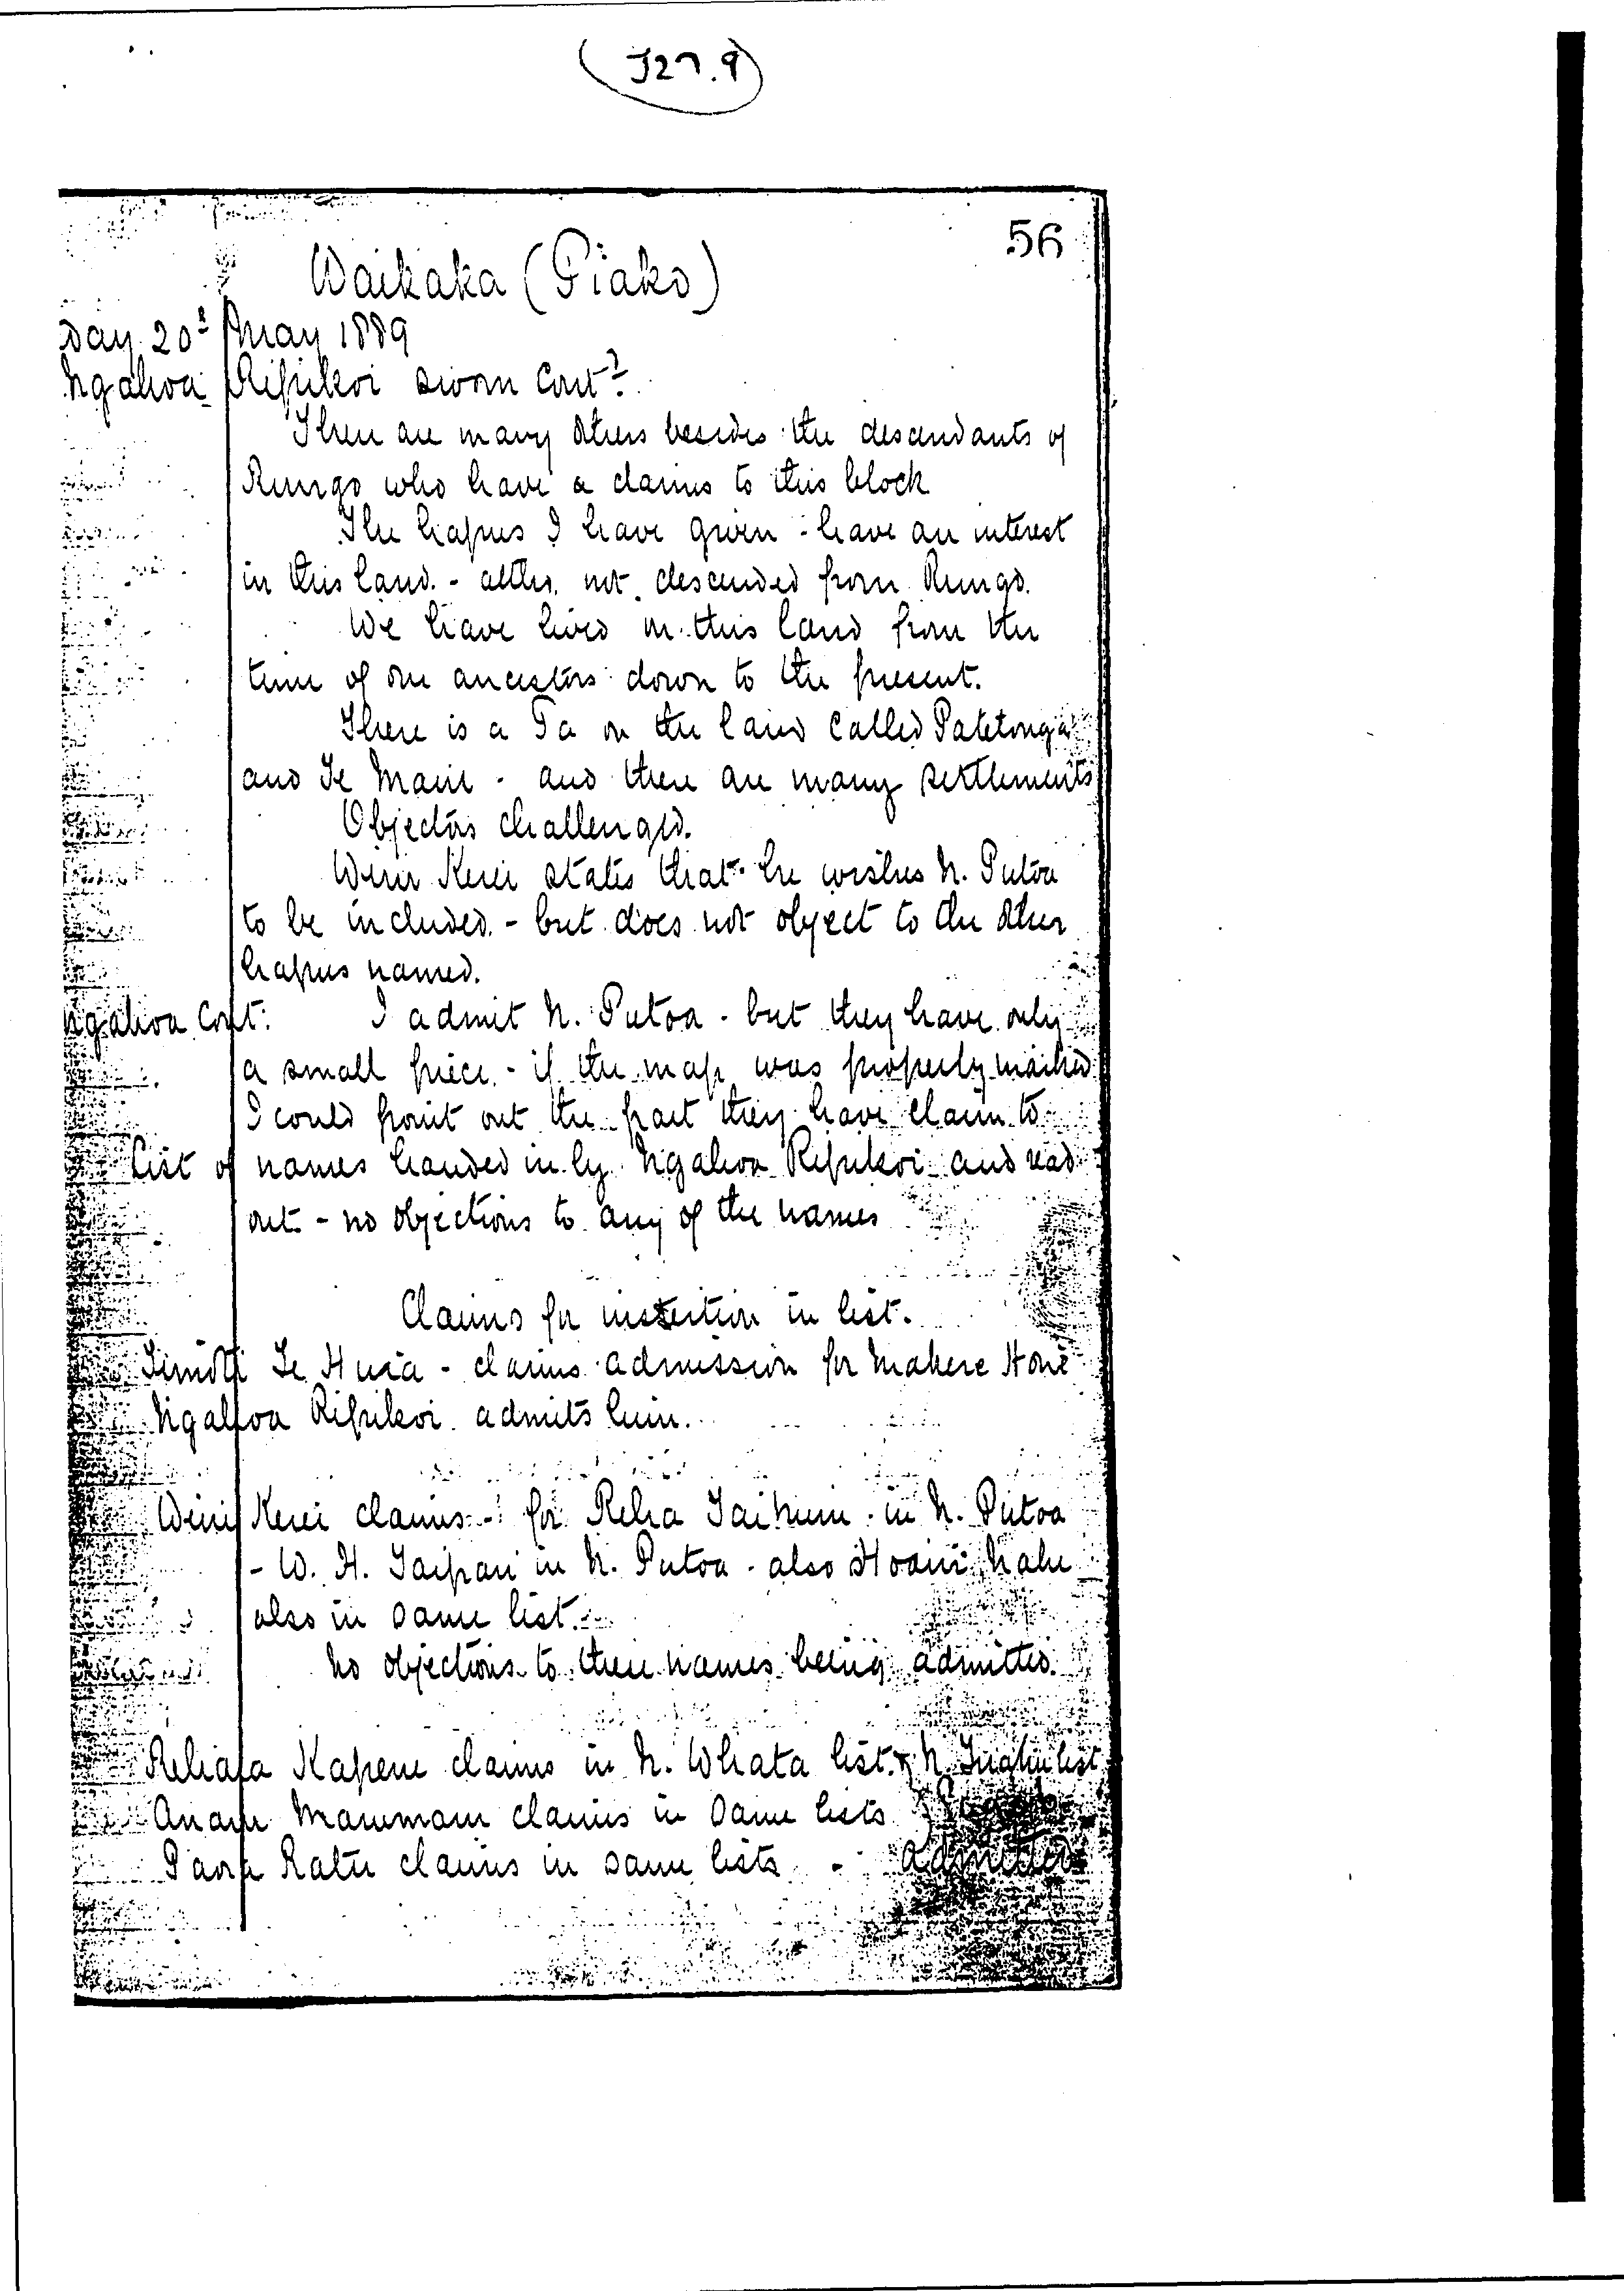 (J27.9)
56
Waikaka (Piako)
day 20th May 1889
Ngahoa Ripikoi sworn Cont?
There are many others besides the descendants of
Rungo who have a claims to this block
The hapus I have given - have an interest
in this land. - altho. not descended from Rungo.
We have lived on this land from the
time of our ancestors down to the present.
There is a Pa on the land called Patetonga
and Te Maire - and there are many settlements
Objectors challenged.
Wini Kerei states that he wishes N. Putoa
to be included. - but does not object to the other
hapus named.
Ngahoa Cont: I admit N. Putoa - but they have only
a small piece. - if the map was properly marked
I could point out the part they have claim to
List of names handed in by Ngahoa Ripikoi and read
out - no objections to any of the names
Claims for insertion in list.
Timoti Te Huia - claims admission for Makere Hone
Ngahoa Ripikoi admits him.
Wini Kerei claims - for Reha Taihumi in N. Putoa
- W. H. Taipari in N. Putoa - also Hoani Nahe
also in same list.
No objections to these names being admitted.
Rehara Kapene claims in N. Whata list. & N. list
claims in same lists
Paora Ratu claims in same lists - admitted